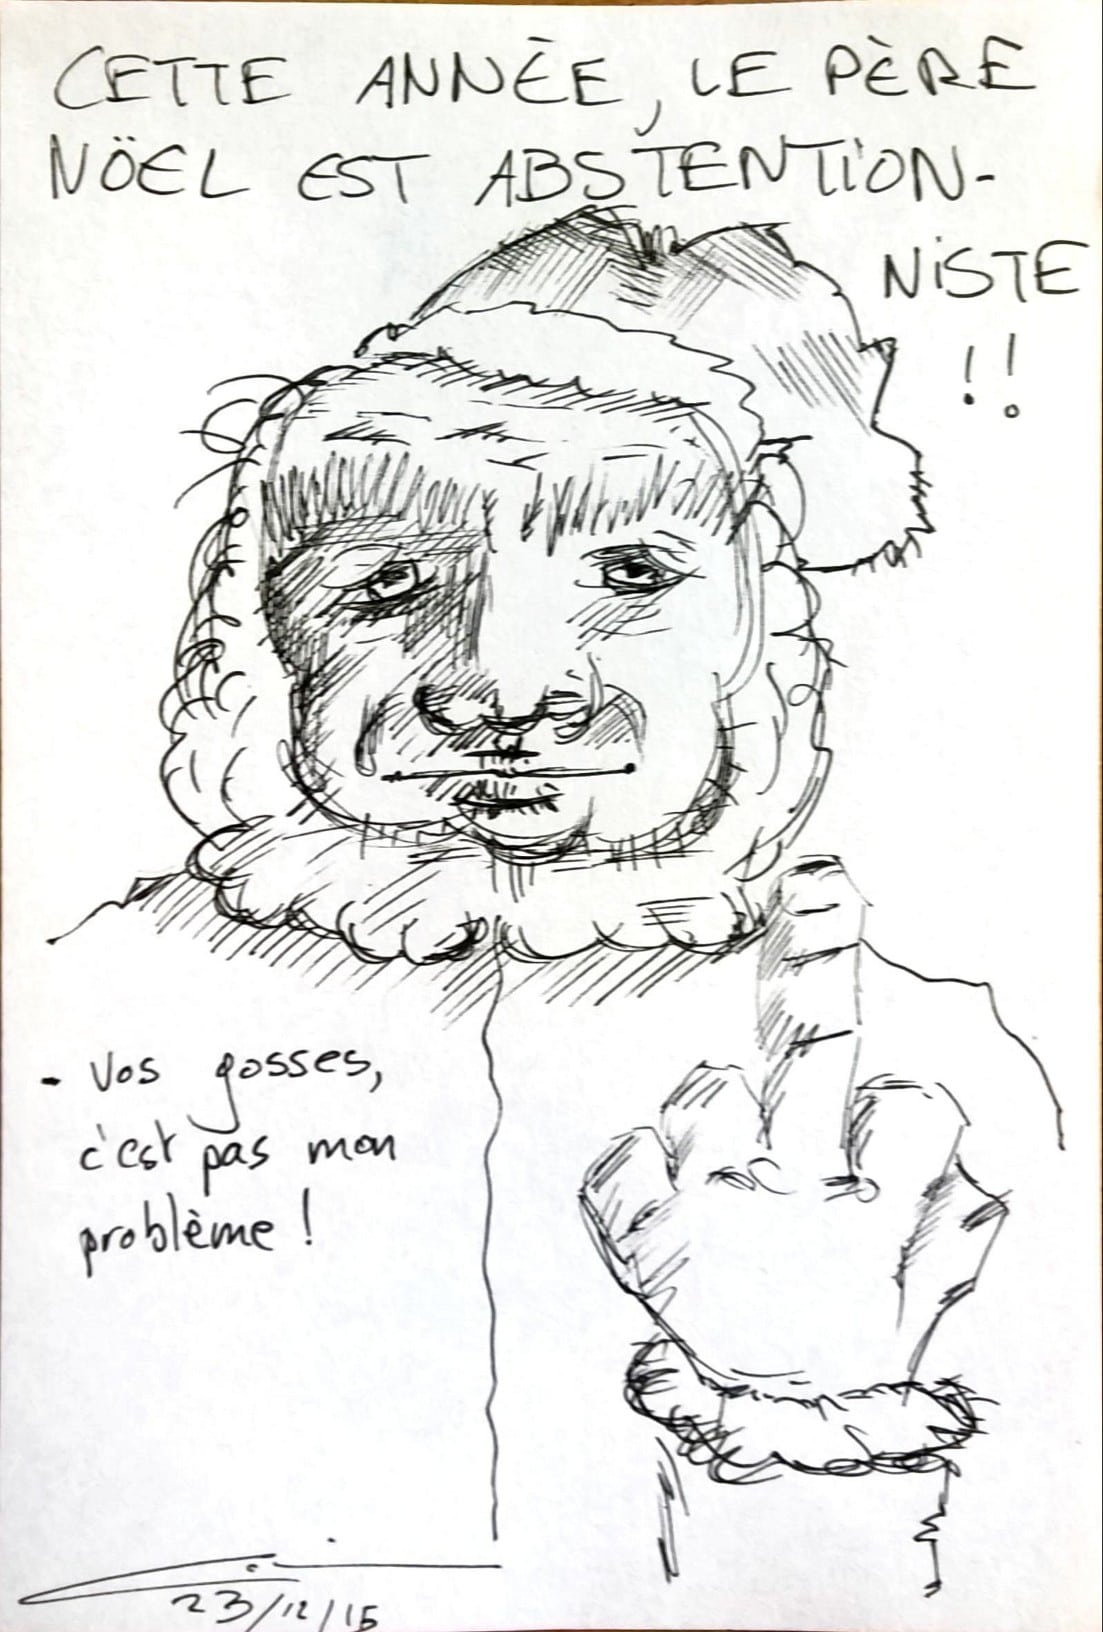 CETTE ANNÉE, LE PÈRE
NÖEL EST ABSTENTION-
NiSTE
!!
- Vos gosses,
c'est pas mon
problème !
23/12/15